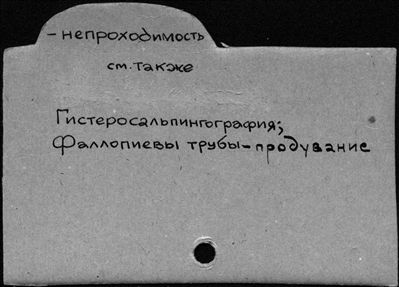 – непроходимость
см. также
Гистеросальпингография;
Фаллопиевы трубы – продувание